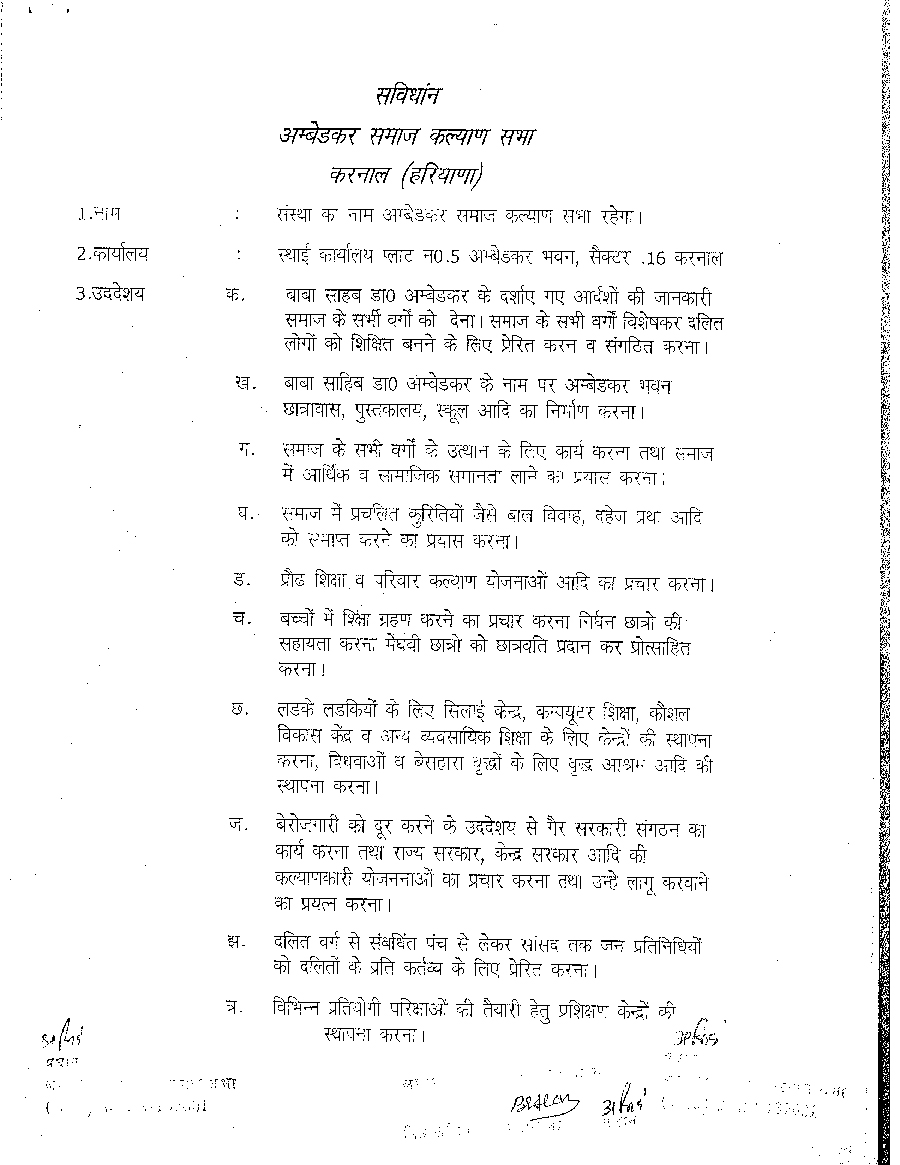 सविधांन
अम्बेडकर समाज कल्याण सभा
करनाल (हरियाणा)
1.नाम : संस्था का नाम अम्बेडकर समाज कल्याण सभा रहेगा।
2.कार्यालय : स्थाई कार्यालय प्लाट न0.5 अम्बेडकर भवन, सैक्टर .16 करनाल
3.उददेशय क. बाबा साहब डा0 अम्बेडकर के दर्शाए गए आर्दशों की जानकारी
समाज के सभी वर्गों को देना। समाज के सभी वर्गों विशेषकर दलित
लोगों को शिक्षित बनने के लिए प्रेरित करन व संगठित करना।
ख. बाबा साहिब डा0 अम्बेडकर के नाम पर अम्बेडकर भवन
छात्रावास, पुस्तकालय, स्कूल आदि का निर्माण करना।
ग. समाज के सभी वर्गों के उत्थान के लिए कार्य करना तथा समाज
में आर्थिक व सामाजिक समानता लाने का प्रयास करना।
घ. समाज में प्रचलित कुरितियों जैसे बाल विवाह, दहेज प्रथा आदि
को समाप्त करने का प्रयास करना।
ड. प्रौढ शिक्षा व परिवार कल्याण योजनाओं आदि का प्रचार करना।
च. बच्चों में शिक्षा ग्रहण करने का प्रचार करना निर्धन छात्रो की
सहायता करना मेघवी छात्रो को छात्रवति प्रदान कर प्रोत्साहित
करना।
छ. लडके लडकियों के लिए सिलाई केन्द्र, कम्पयूटर शिक्षा, कौशल
विकास केंद्र व अन्य व्यवसायिक शिक्षा के लिए केन्द्रों की स्थापना
करना, विधवाओं व बेसहारा वृद्धों के लिए वृद्ध आश्रम आदि की
स्थापना करना।
ज. बेरोजगारी को दूर करने के उददेशय से गैर सरकारी संगठन का
कार्य करना तथा राज्य सरकार, केन्द्र सरकार आदि की
कल्याणकारी योजननाओं का प्रचार करना तथा उन्हे लागू करवाने
का प्रयत्न करना।
झ. दलित वर्ग से संबधित पंच से लेकर सांसद तक जन प्रतिनिधियों
को दलितों के प्रति कर्तव्य के लिए प्रेरित करना।
त्र. विभिन्न प्रतियोगी परिक्षाओं की तैयारी हेतु प्रशिक्षण केन्द्रों की
स्थापना करना।
प्रधान